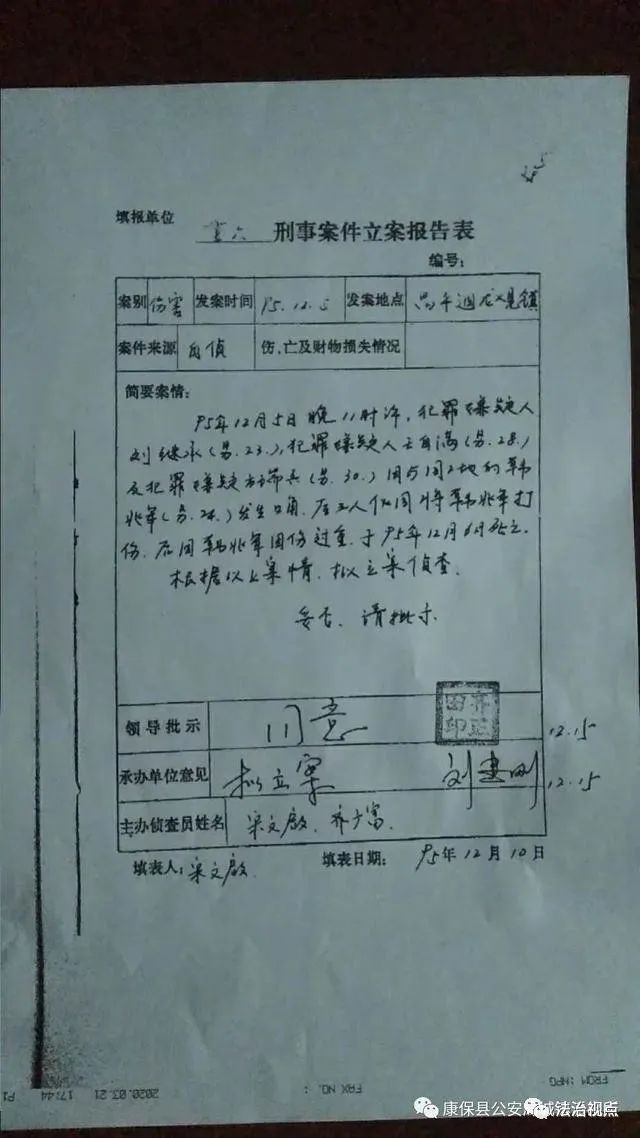 填报单位
刑事案件立案报告表
编号：
案别 伤害 发案时间 95.12.5 发案地点 昌平迴龙观镇
案件来源 自侦 伤、亡及财物损失情况
简要案情：
95年12月5日晚11时许，犯罪嫌疑人
刘继承（男.23.），犯罪嫌疑人王自满（男.28.）
及犯罪嫌疑（男.30.）因与同工地的韩
兆年（男.24.）发生口角，后三人伙同将韩兆年打
伤，后因韩兆年因伤过重，于95年12月6日死亡。
根据以上案情，拟立案侦查。
妥否，请批示
领导批示 同意 12.15
承办单位意见 拟立案 刘建刚 12.15
主办侦查员姓名 梁文启、齐广富
填表人：梁文启 填表日期：95年12月10日
FROM :NPG FAX NO. : 2020.03.21 17:44 P1
康保县公安局 法治视点